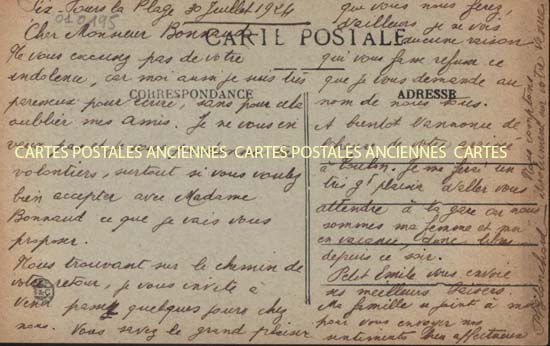 Six-Fours la Plage 30 Juillet 1924
010195
Cher Monsieur Bonnaud
CARTE POSTALE
CORRESPONDANCE
ADRESSE
Ne vous excusez pas de votre
indolence, car moi aussi je suis très
paresseux pour écrire, sans pour cela
oublier mes amis. Je ne vous en
CARTES POSTALES ANCIENNES CARTES POSTALES ANCIENNES CARTES
volontiers, surtout si vous voulez
bien accepter avec Madame
Bonnaud ce que je vais vous
proposer.
Nous trouvant sur le chemin de
votre retour, je vous invite à
venir passer quelques jours chez
nous. Vous savez le grand plaisir
que vous nous ferez,
d'ailleurs je ne vois
aucune raison
qui vous fasse refuser ce
que je vous demande au
nom de nous tous.
A bientôt l'annonce de
votre arrivée
à Toulon. Je me ferai un
très gd plaisir d'aller vous
attendre à la gare car nous
sommes ma femme et moi
en vacances, donc libres
depuis ce soir.
Petit Emile vous envoie
ses meilleurs baisers.
Ma famille se joint à moi
pour vous envoyer nos
sentiments bien affectueux
Nous comptons
absolument sur votre venue